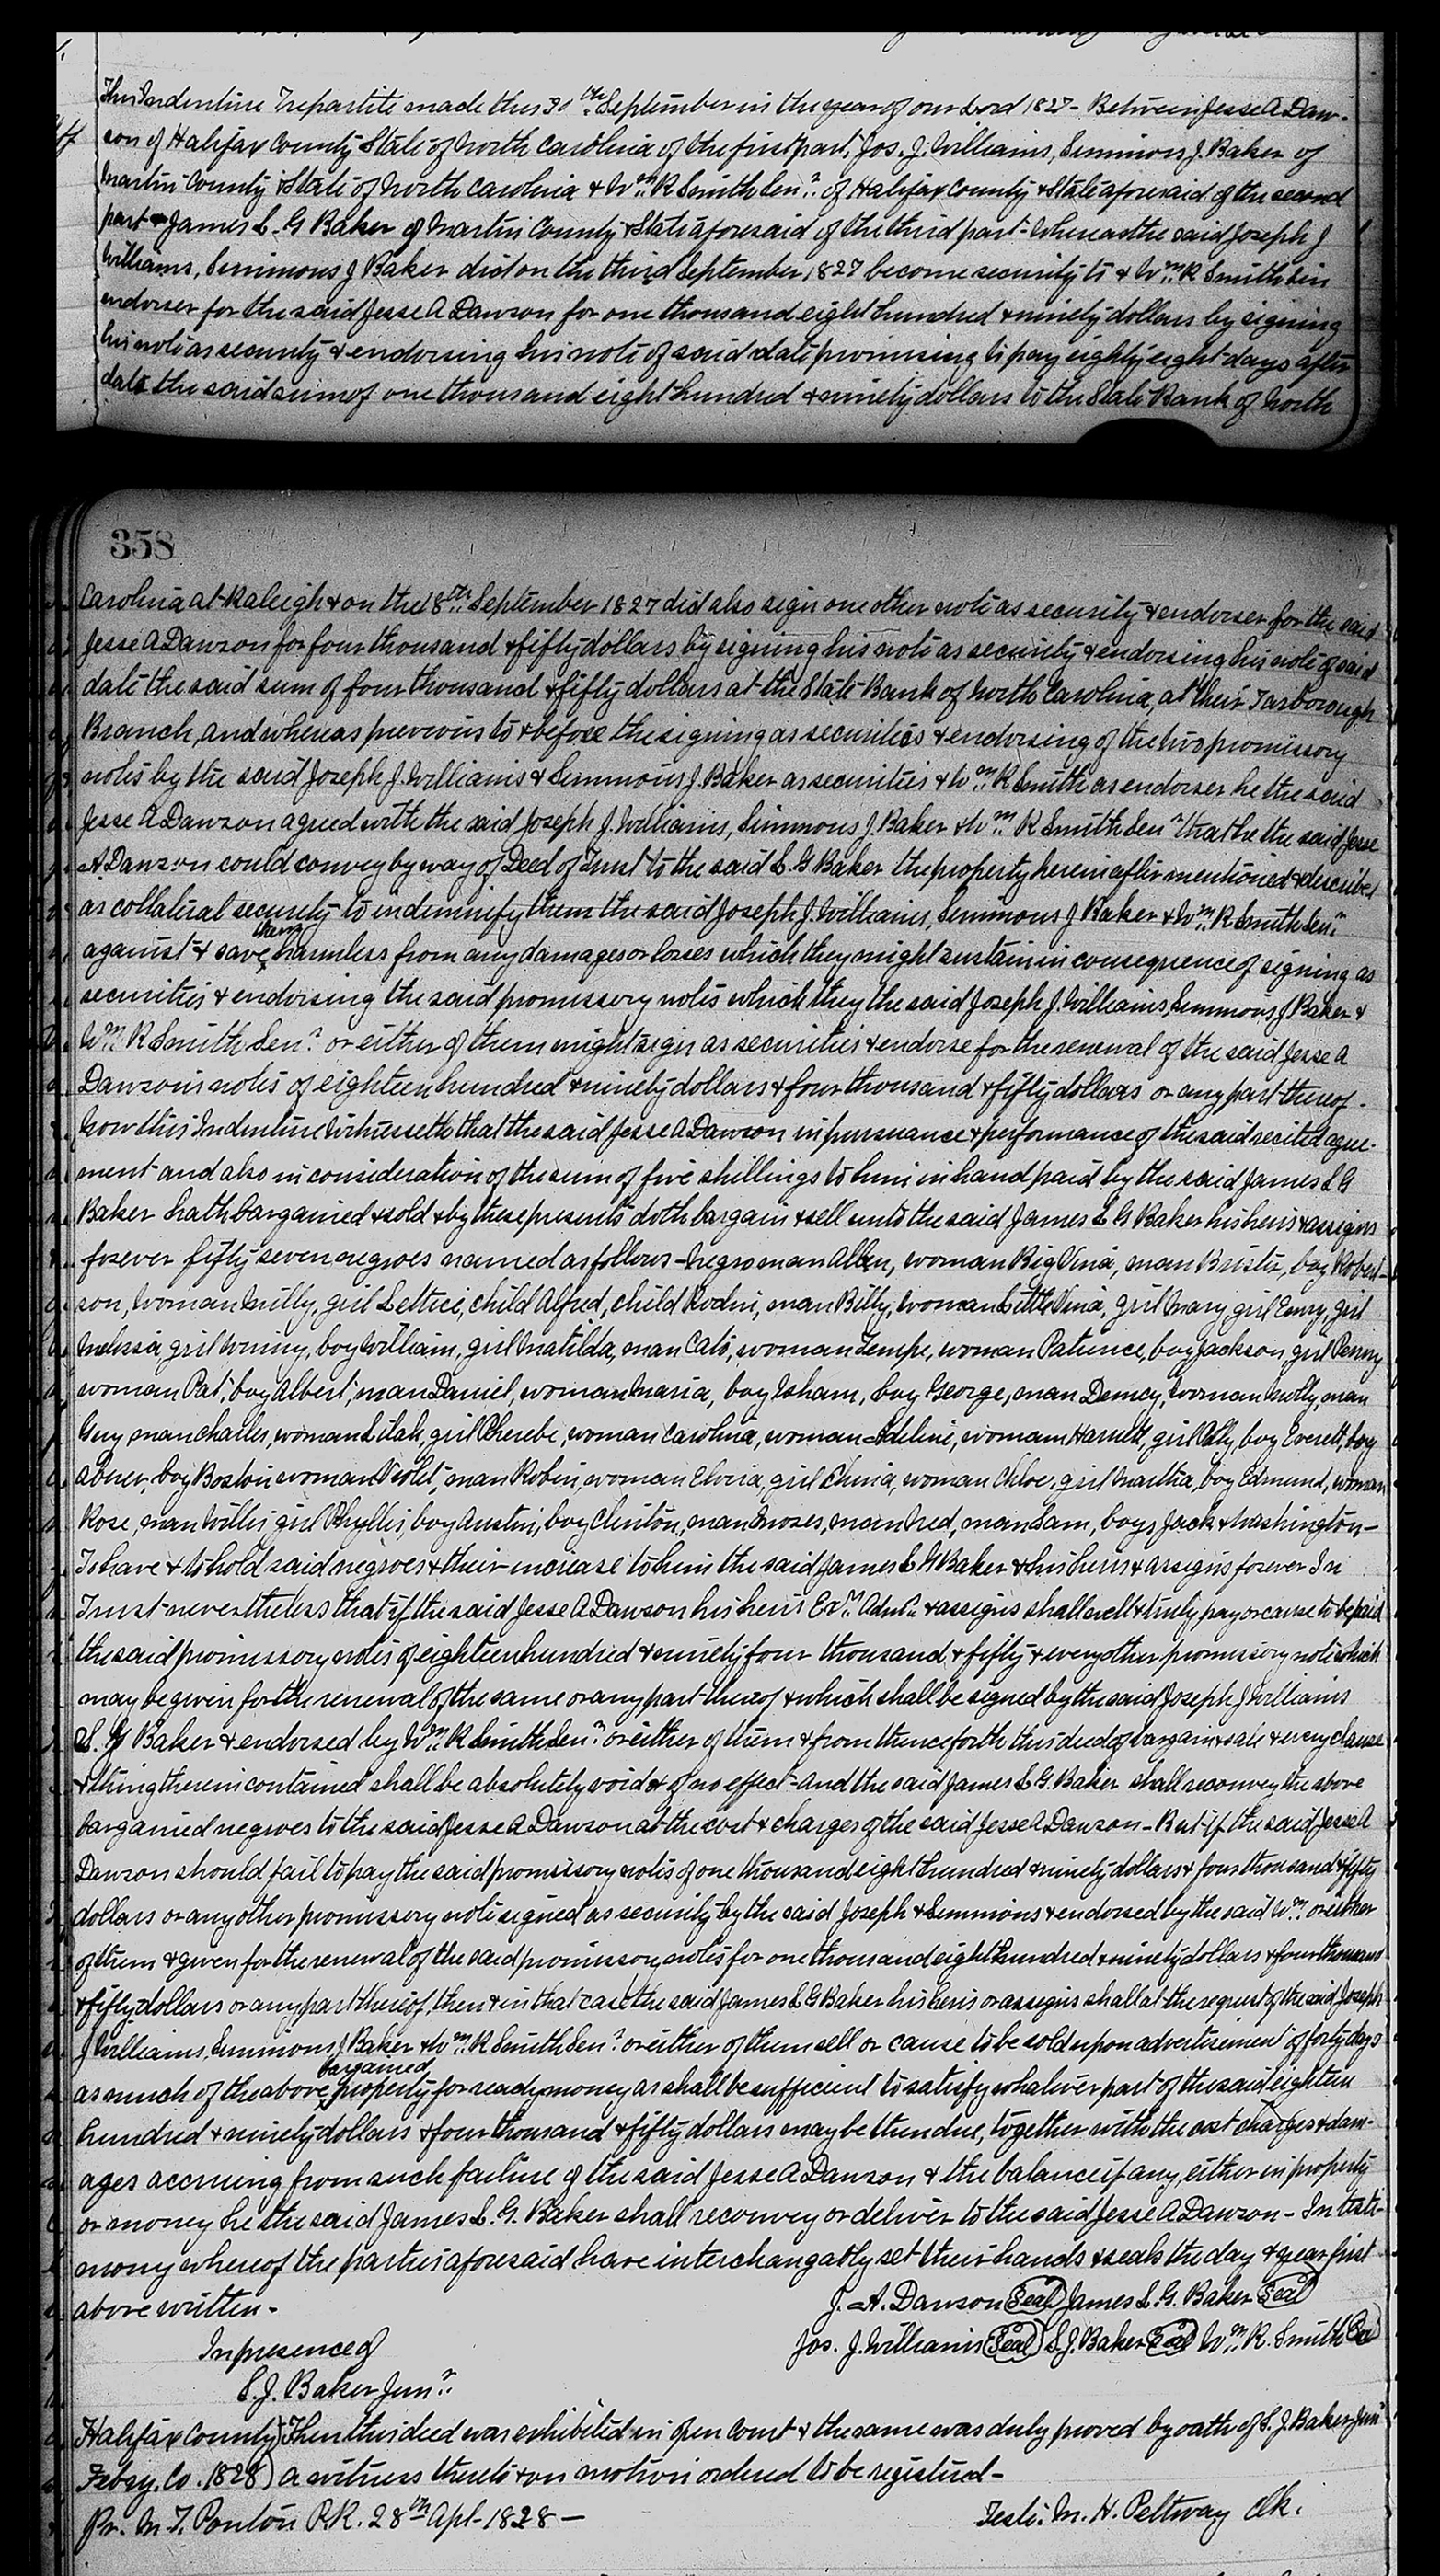 This Indenture Trepartite made this 30th September in the year of our Lord 1827 - Between Jesse A Daw-
son of Halifax County State of North Carolina of the first part, Jos. J. Williams, Simmons J. Baker of
Martin County & State of North Carolina & Wm. R Smith Senr. of Halifax County & State aforesaid of the second
part & James L. G Baker of Martin County & State aforesaid of the third part - Whereas the said Joseph J
Williams, Simmons J Baker did on the third September 1827 become security to & Wm. R Smith Sen
endorser for the said Jesse A Dawson for one thousand eight hundred & ninety dollars by signing
his note as security & endorsing his note of said date promising to pay eighty eight days after
date the said sum of one thousand eight hundred & ninety dollars to the State Bank of North
358
Carolina at Raleigh & on the 18th. September 1827 did also sign one other note as security & endorser for the said
Jesse A Dawson for four thousand & fifty dollars by signing his note as security & endorsing his note of said
date the said sum of four thousand & fifty dollars at the State Bank of North Carolina, at their Tarborough
Branch, and whereas previous to & before the signing as securities & endorsing of the two promissory
notes by the said Joseph J. Williams & Simmons J. Baker as securities & Wm. R Smith as endorser he the said
Jesse A Dawson agreed with the said Joseph J. Williams, Simmons J. Baker & Wm. R Smith Senr that he the said Jesse
A. Dawson could convey by way of Deed of Trust to the said L. G Baker the property herein after mentioned & described
as collateral security to indemnify them the said Joseph J. Williams, Simmons J Baker & Wm. R Smith Senr
against & save them harmless from any damages or losses which they might sustain in consequence of signing as
securities & endorsing the said promissory notes which they the said Joseph J. Williams, Simmons J Baker &
Wm. R Smith Senr. or either of them might sign as securities & endorse for the renewal of the said Jesse A
Dawson's notes of eighteen hundred & ninety dollars & four thousand & fifty dollars or any part thereof.
Now this Indenture Witnesseth that the said Jesse A Dawson in pursuance & performance of the said recited agree-
ment and also in consideration of the sum of five shillings to him in hand paid by the said James L G
Baker hath bargained & sold & by these presents doth bargain & sell unto the said James L G Baker his heirs & assigns
forever fifty seven negroes named as follows - Negro man Allen, woman Big Vina, man Brister, boy Robert-
son, woman Milly, girl Lettice, child Alfred, child Rodni, man Billy, woman Little Vina, girl Mary, girl Emry, girl
Melissa girl Winny, boy William, girl Matilda, man Cato, woman Tempe, woman Patience, boy Jackson, girl Penny
woman Pat, boy Albert, man Daniel, woman Maria, boy Isham, boy George, man Demcy, woman Molly, man
Guy man Charles, woman Litah, girl Pherebe, woman Carolina, woman Adeline, woman Harriett, girl Ally, boy Everett, boy
Abner, boy Boston woman Violet, man Robin, woman Elvira, girl China, woman Chloe, girl Martha, boy Edmund, woman
Rose, man Willis, girl Phyllis, boy Austin, boy Clinton, man Moses, man Ned, man Sam, boys Jack & Washington -
To have & to hold said negroes & their increase to him the said James L G Baker & his heirs & assigns forever In
Trust nevertheless that if the said Jesse A Dawson his heirs Exrs. Admrs. & assigns shall well & truly pay or cause to be paid
the said promissory notes of eighteen hundred & ninety four thousand & fifty & every other promissory note which
may be given for the renewal of the same or any part thereof & which shall be signed by the said Joseph J Williams
S. J Baker & endorsed by Wm. R Smith Senr. or either of them & from thenceforth this deed of bargain & sale & every clause
& thing therein contained shall be absolutely void & of no effect - and the said James L G. Baker shall reconvey the above
bargained negroes to the said Jesse A Dawson at the cost & charges of the said Jesse A Dawson - But if the said Jesse A
Dawson should fail to pay the said promissory notes of one thousand eight hundred & ninety dollars & four thousand & fifty
dollars or any other promissory note signed as security by the said Joseph & Simmons & endorsed by the said Wm. or either
of them & given for the renewal of the said promissory notes for one thousand eight hundred & ninety dollars & four thousand
& fifty dollars or any part thereof, then & in that case the said James L G Baker his heirs or assigns shall at the request of the said Joseph
J Williams, Simmons J. Baker & Wm. R Smith Senr. or either of them sell or cause to be sold upon advertisement of forty days
as much of the above bargained property for ready money as shall be sufficient to satisfy whatever part of the said eighteen
hundred & ninety dollars & four thousand & fifty dollars may be then due, together with the cost charges & dam-
ages accruing from such failure of the said Jesse A Dawson & the balance if any, either in property
or money he the said James L. G. Baker shall reconvey or deliver to the said Jesse A Dawson - In testi-
mony whereof the parties aforesaid have interchangably set their hands & seals the day & year first
above written -
J. A. Dawson Seal James L. G. Baker Seal
Jos. J. Williams Seal S. J. Baker Seal Wm. R. Smith Seal
In presence of
S. J. Baker Junr.
Halifax County } Then this deed was exhibited in Open Court & the same was duly proved by oath of S. J. Baker Jun
Febry. Co. 1828 } a witness thereto & on motion ordered to be registered -
Pr. M. T. Ponton P.R. 28th Apl - 1828 -
Teste: M. H. Pettway Clk.